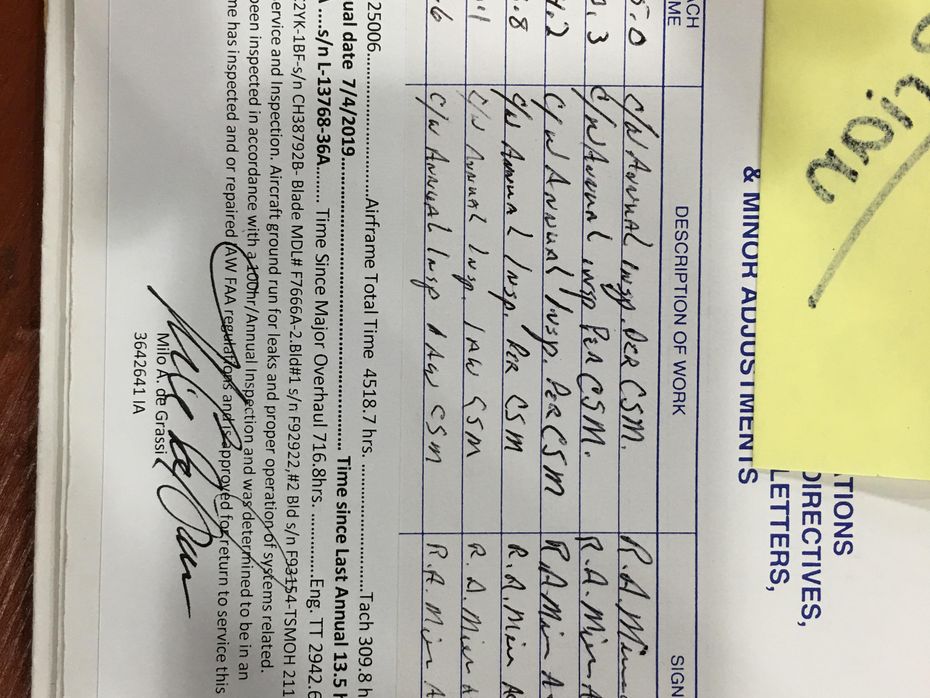 ATIONS
DIRECTIVES,
LETTERS,
& MINOR ADJUSTMENTS
ACH
ME DESCRIPTION OF WORK SIGN
5.0 C/W Annual Insp. Per CSM. R.A.
.3 C/W Annual Insp Per CSM. R.A. A
.2 C/W Annual Insp. Per CSM R.A. A
.8 C/W Annual Insp. Per CSM R.A.
.1 C/W Annual Insp. IAW CSM R.A.
.6 C/W Annual Insp IAW CSM R.A. A
25006..................Airframe Total Time 4518.7 hrs. ..................Tach 309.8 h
ual date 7/4/2019..................Time since Last Annual 13.5 h
A ....s/n L-13768-36A....... Time Since Major Overhaul 716.8hrs. ..........Eng. TT 2942.6
2YK-1BF-s/n CH38792B- Blade MDL# F7666A-2.Bld#1 s/n F92922,#2 Bld s/n F93154-TSMOH 211
ervice and Inspection. Aircraft ground run for leaks and proper operation of systems related.
been inspected in accordance with a 100hr/Annual Inspection and was determined to be in an
me has inspected and or repaired IAW FAA regulations and is approved for return to service this
Milo A. de Grassi
3642641 IA